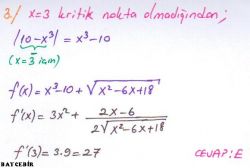 3./ x=3 kritik nokta olmadığından;
|10-x³| = x³-10
(x=3 için)
f(x) = x³-10 + √x²-6x+18
f'(x) = 3x² + 2x-6 / 2√x²-6x+18
f'(3) = 3.9 = 27 CEVAP: E
BAYCEBİR